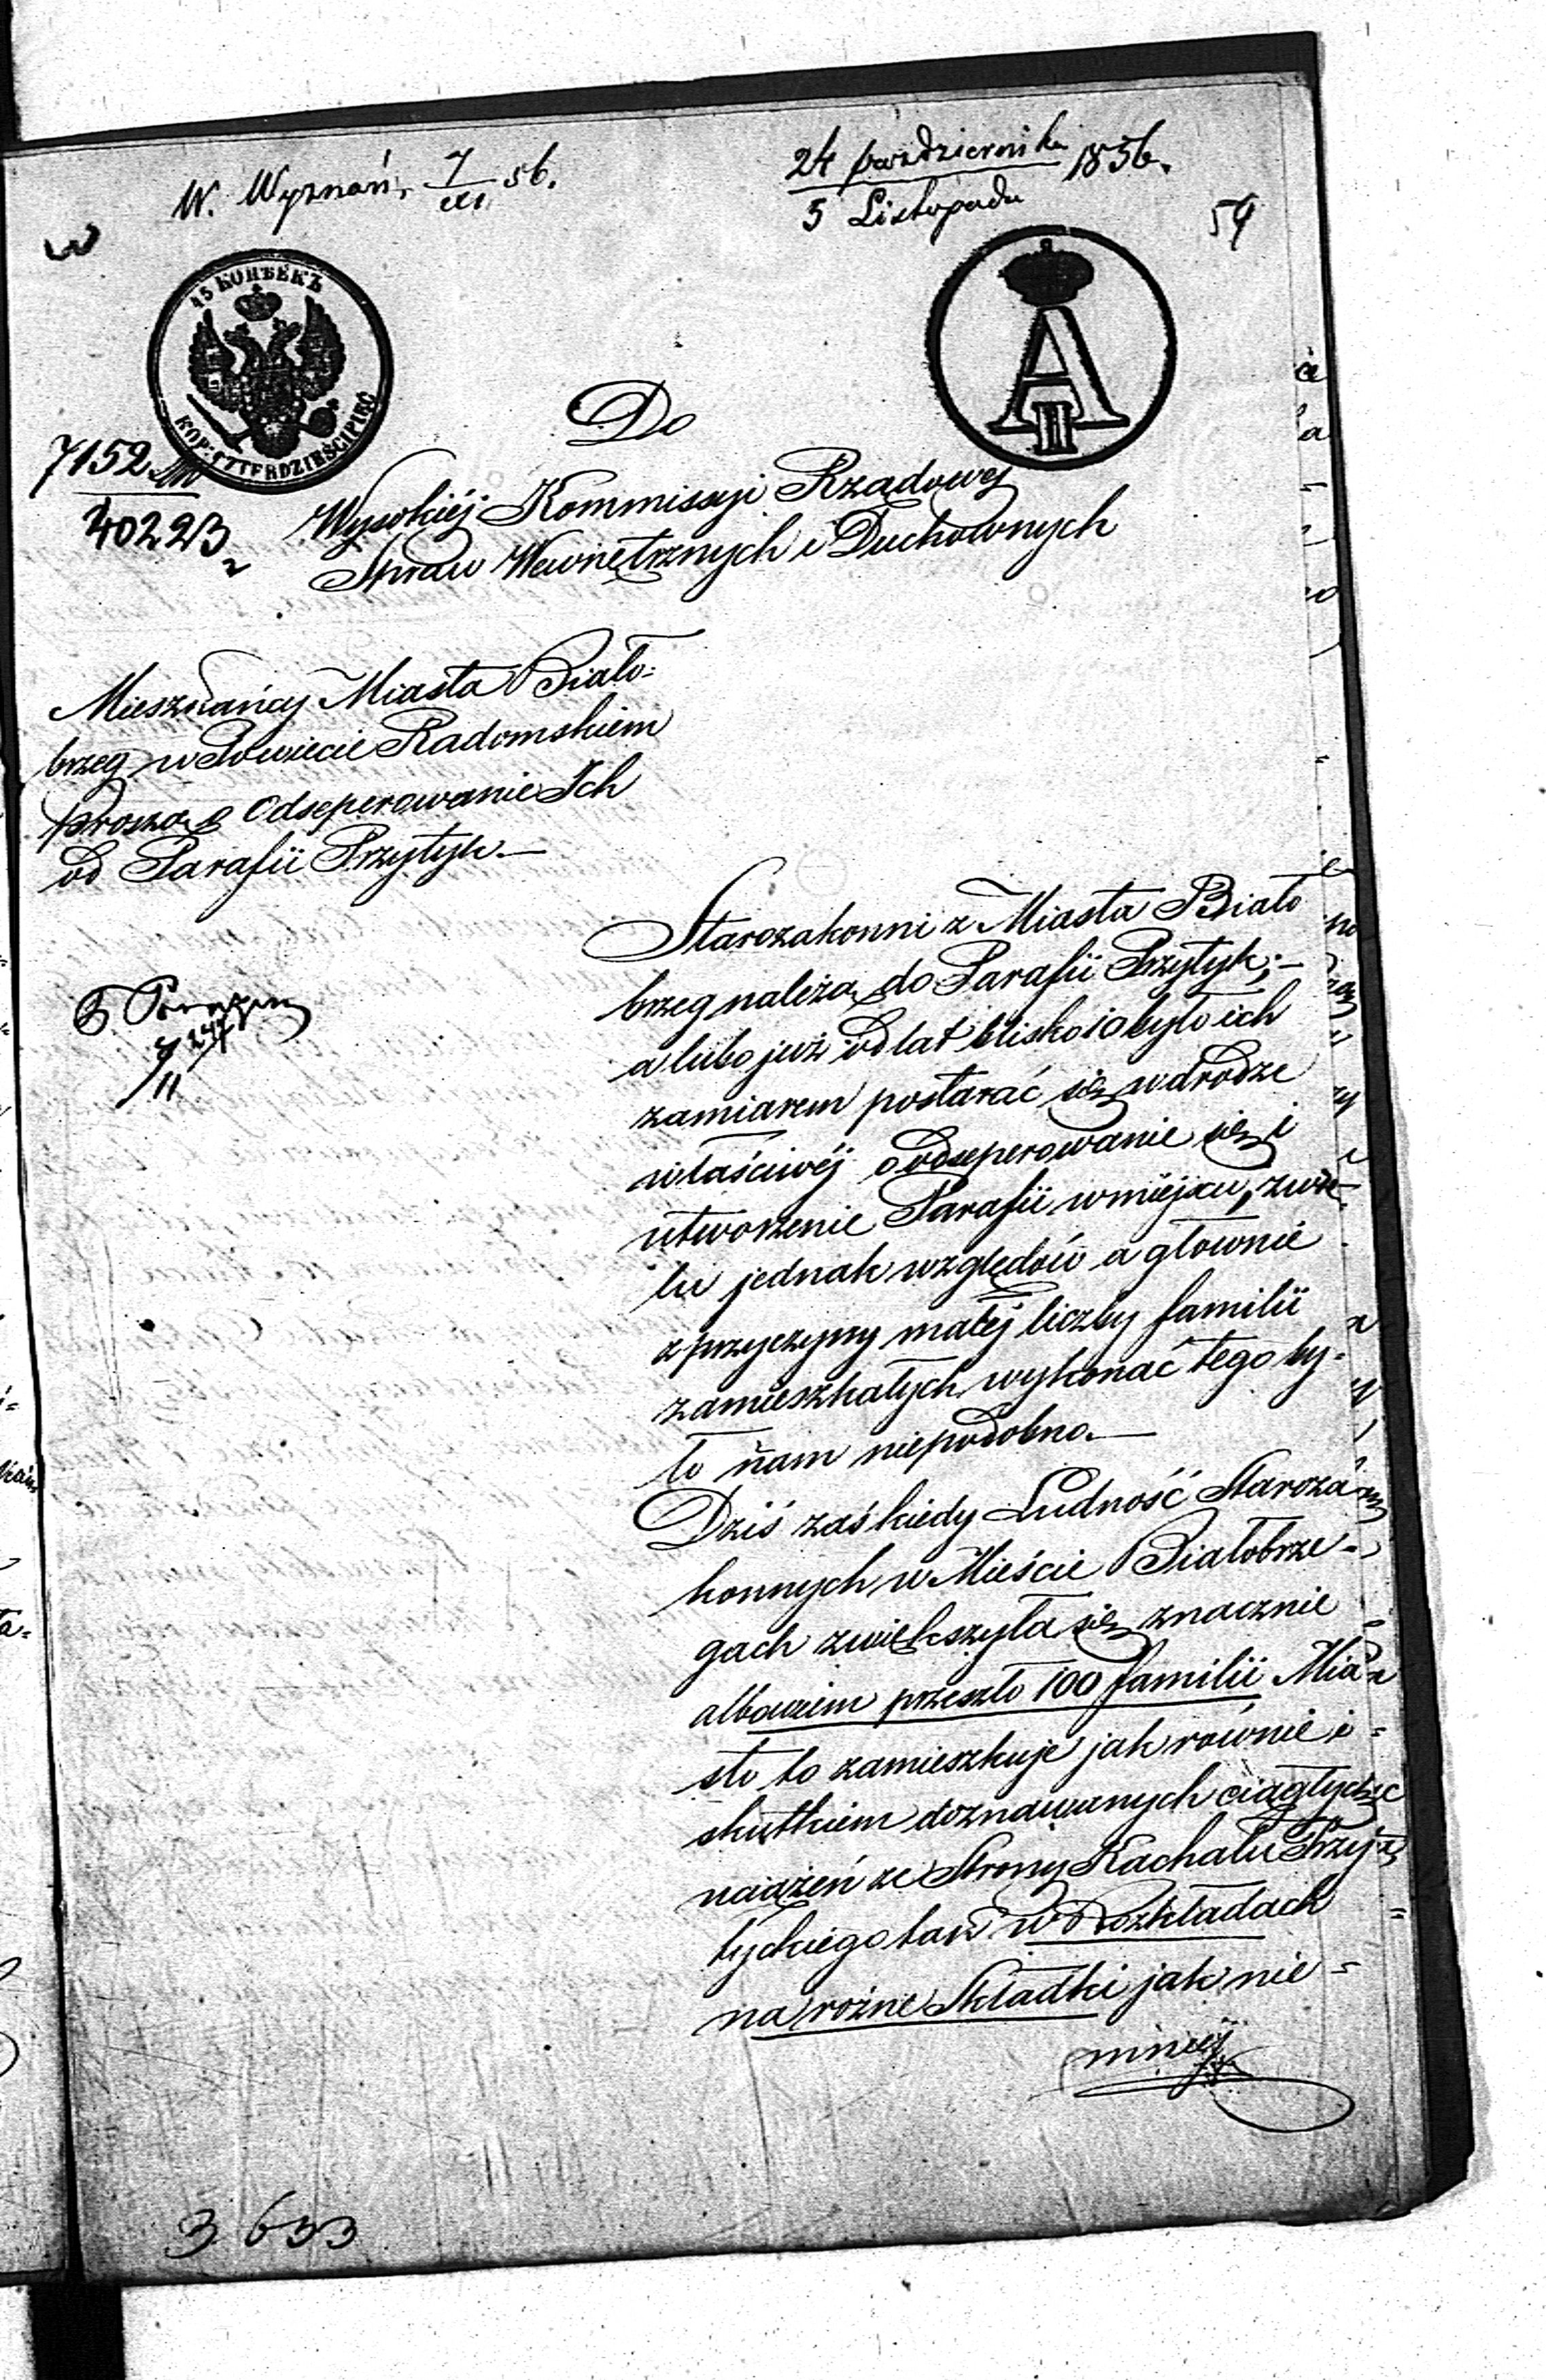 W. Wyznań 7/XI 56.
24 października 1856.
5 Listopada
59
45 КОПѢЕКЪ
KOP: CZTERDZIEŚCI PIĘĆ
A II
7152
40223
2
Do
Wysokiéj Kommissyi Rządowej
Spraw Wewnętrznych i Duchownych
Mieszkańcy Miasta Biało=
brzeg w Powiecie Radomskiem
proszą o Odseperowanie Ich
od Parafii Przytyk.—
7/11
Starozakonni z Miasta Biało
brzeg należą do Parafii Przytyk;—
a lubo już od lat blisko 10 było ich
zamiarem postarać się w drodze
właściwéj o odseperowanie się i
utworzenie Parafii w miejscu, z wie-
lu jednak względów a głownie
z przyczyny małéj liczby familii
zamieszkałych wykonać tego by=
ło nam niepodobna.—
Dziś zaś kiedy Ludność Staroza
konnych w Mieście Białobrze=
gach zwiększyła się znacznie
albowiem przeszło 100 familii Mia
sto to zamieszkuje jak rownie i
skutkiem doznawanych ciągłych
uciążeń ze Strony Kachału Przy
tyckiego tak w Rozkładach
na rożne Składki jak nie=
mniéj
3633